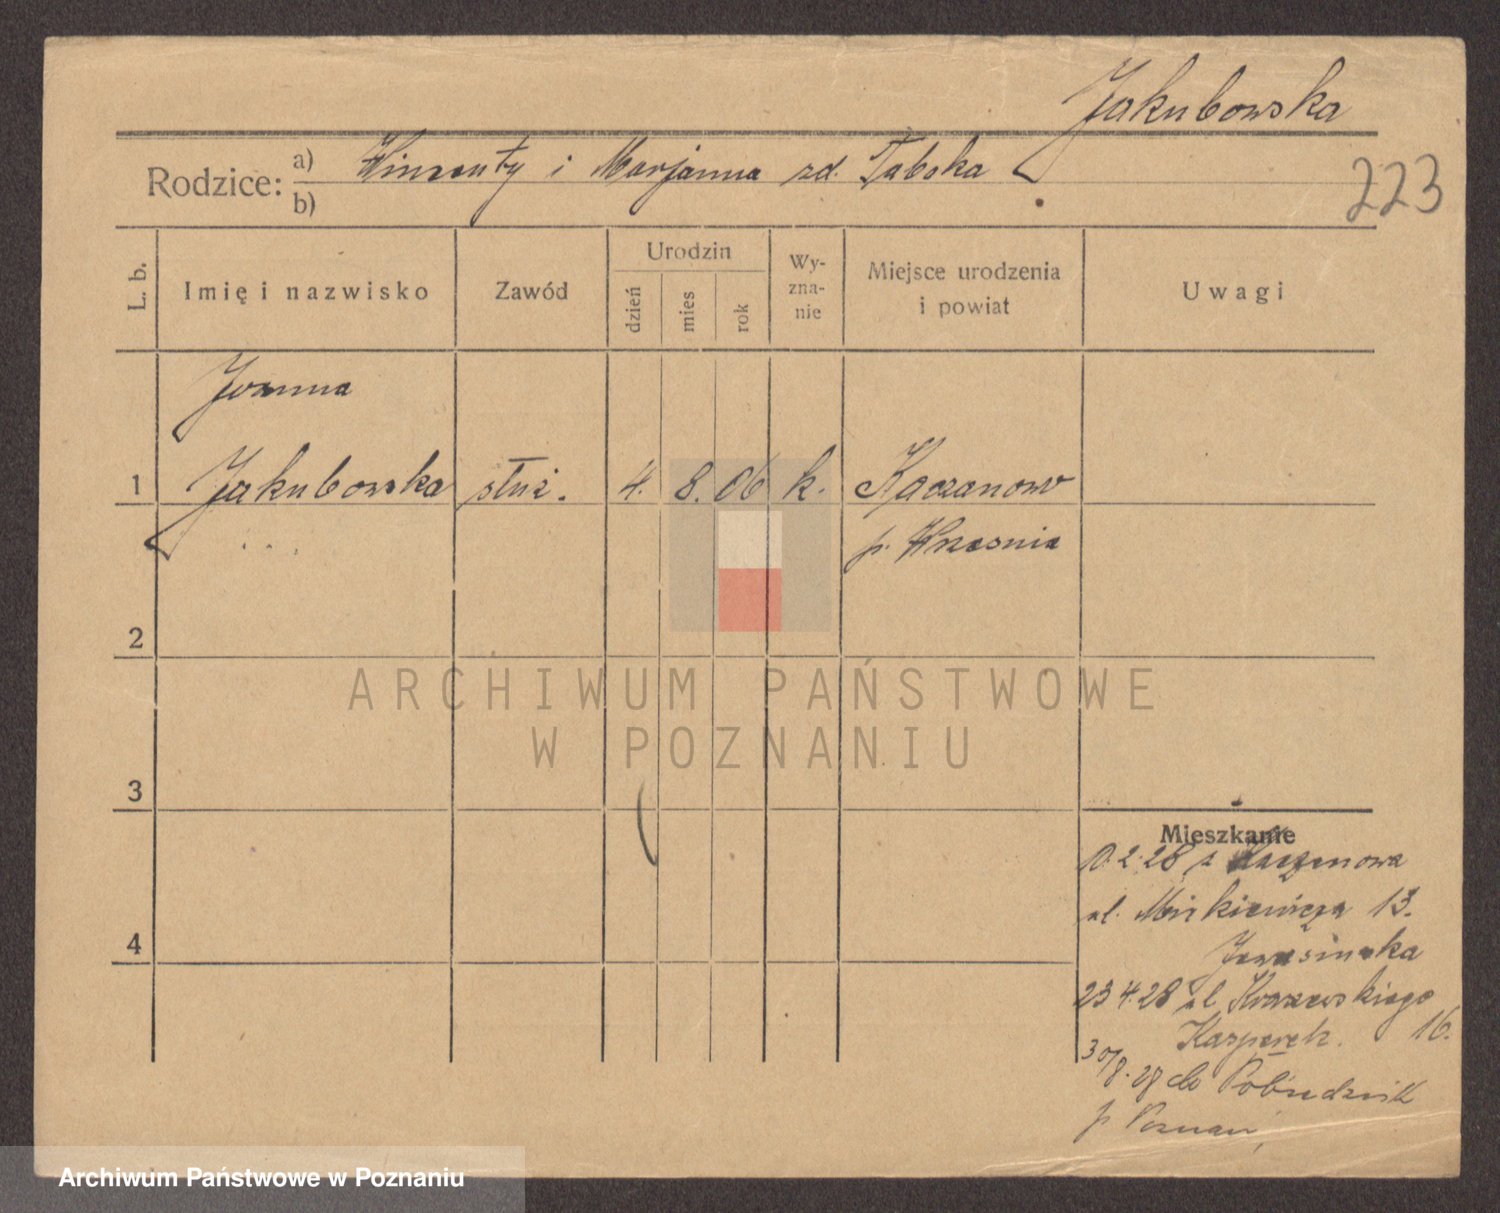 Jakubowska
Rodzice: a) Winzenty i Marjanna zd. Taboka
b)
223
L. b.
Imię i nazwisko
Zawód
Urodzin
dzień
mies
rok
Wy-
zna-
nie
Miejsce urodzenia
i powiat
Uwagi
Joanna
1 Jakubowska służ. 4. 8. 06 k. Kaczanowo
p. Września
2
ARCHIWUM PAŃSTWOWE
W POZNANIU
3
Mieszkanie
10.2.28 z Kaczanowa
ul. Mickiewicza 13.
4
23 4.28 ul Kraszewskiego
Kasperek. 16.
30/8.28 do
p Poznań,
Archiwum Państwowe w Poznaniu